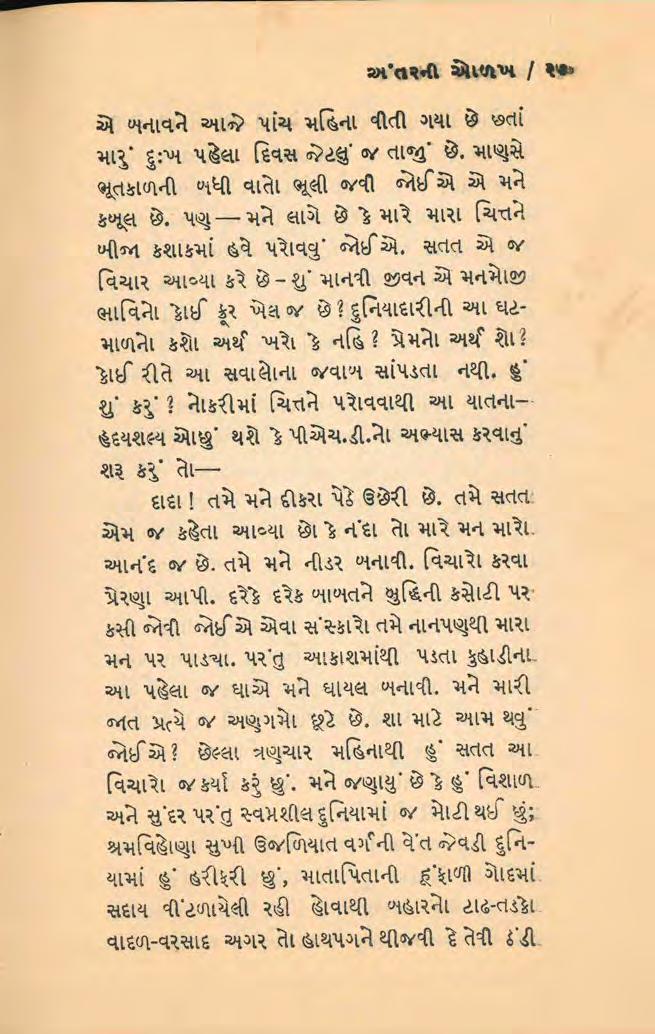 અંતરની ઓળખ / ૨૭
એ બનાવને આજે પાંચ મહિના વીતી ગયા છે છતાં
મારું દુઃખ પહેલા દિવસ જેટલું જ તાજું છે. માણસે
ભૂતકાળની બધી વાતો ભૂલી જવી જોઈએ એ મને
કબૂલ છે. પણ — મને લાગે છે કે મારે મારા ચિત્તને
બીજા કશાકમાં હવે પરોવવું જોઈએ. સતત એ જ
વિચાર આવ્યા કરે છે – શું માનવી જીવન એ મનમોજી
ભાવિનો કોઈ ક્રૂર ખેલ જ છે? દુનિયાદારીની આ ઘટ-
માળનો કશો અર્થ ખરો કે નહિ? પ્રેમનો અર્થ શો?
કોઈ રીતે આ સવાલોના જવાબ સાંપડતા નથી. હું
શું કરું? નોકરીમાં ચિત્તને પરોવવાથી આ યાતના—
હૃદયશલ્ય ઓછું થશે કે પીએચ.ડી.નો અભ્યાસ કરવાનું
શરૂ કરું તો—
દાદા! તમે મને દીકરા પેઠે ઉછેરી છે. તમે સતત
એમ જ કહેતા આવ્યા છો કે નંદા તો મારે મન મારો
આનંદ જ છે. તમે મને નીડર બનાવી. વિચારો કરવા
પ્રેરણા આપી. દરેકે દરેક બાબતને બુદ્ધિની કસોટી પર
કસી જોવી જોઈએ એવા સંસ્કારો તમે નાનપણથી મારા
મન પર પાડ્યા. પરંતુ આકાશમાંથી પડતા કુહાડીના
આ પહેલા જ ઘાએ મને ઘાયલ બનાવી. મને મારી
જાત પ્રત્યે જ અણગમો છૂટે છે. શા માટે આમ થવું
જોઈએ? છેલ્લા ત્રણચાર મહિનાથી હું સતત આ
વિચારો જ કર્યા કરું છું. મને જણાયું છે કે હું વિશાળ
અને સુંદર પરંતુ સ્વપ્નશીલ દુનિયામાં જ મોટી થઈ છું;
શ્રમવિહોણા સુખી ઉજળિયાત વર્ગની વેંત જેવડી દુનિ-
યામાં હું હરીફરી છું, માતાપિતાની હૂંફાળી ગોદમાં
સદાય વીંટળાયેલી રહી હોવાથી બહારનો ટાઢ-તડકો
વાદળ-વરસાદ અગર તો હાથપગને થીજવી દે તેવી ઠંડી